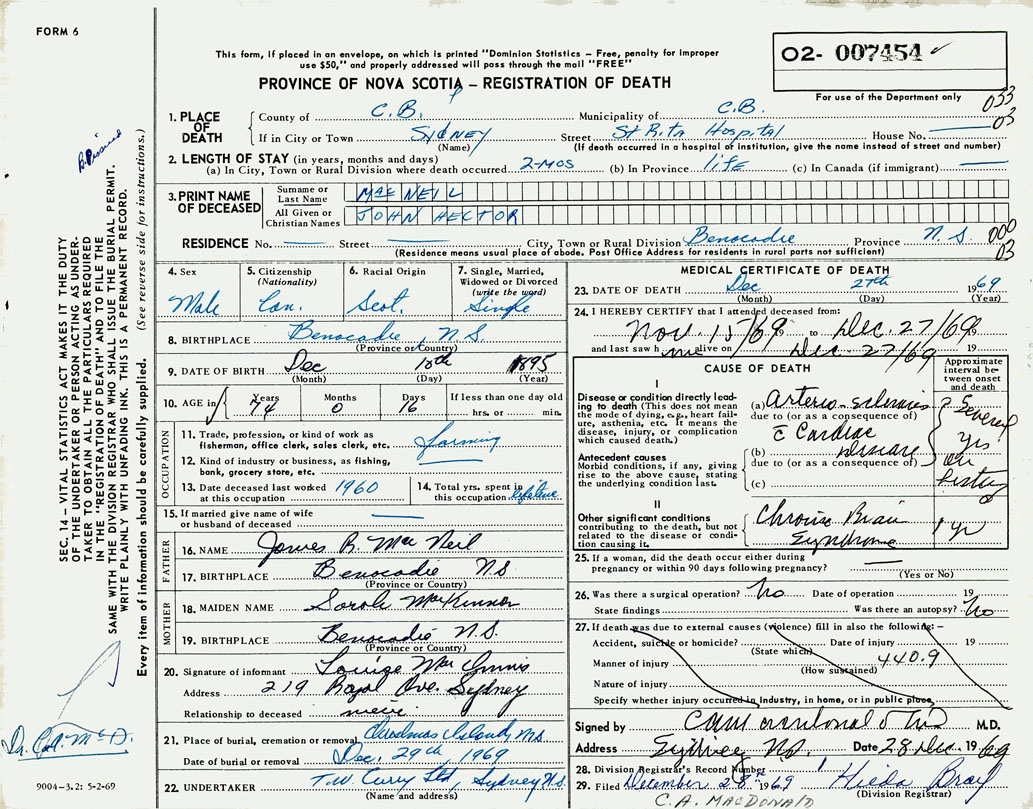 FORM 6
This form, if placed in an envelope, on which is printed "Dominion Statistics – Free, penalty for improper
use $50," and properly addressed will pass through the mail "FREE"
PROVINCE OF NOVA SCOTIA – REGISTRATION OF DEATH
02- 007454
For use of the Department only
033
03
1. PLACE OF DEATH
County of C.B. Municipality of C.B.
If in City or Town Sydney Street St Rita Hospital House No.
(Name) (If death occurred in a hospital or institution, give the name instead of street and number)
2. LENGTH OF STAY (in years, months and days)
(a) In City, Town or Rural Division where death occurred 2-mos (b) In Province life (c) In Canada (if immigrant)
3. PRINT NAME OF DECEASED
Surname or Last Name MAC NEIL
All Given or Christian Names JOHN HECTOR
RESIDENCE No. Street City, Town or Rural Division Benacadie Province N.S. 000
03
(Residence means usual place of abode. Post Office Address for residents in rural parts not sufficient)
4. Sex Male
5. Citizenship (Nationality) Can.
6. Racial Origin Scot.
7. Single, Married, Widowed or Divorced (write the word) Single
8. BIRTHPLACE Benacadie, N.S.
(Province or Country)
9. DATE OF BIRTH Dec 10th 1895
(Month) (Day) (Year)
10. AGE in Years 74 Months 0 Days 16 If less than one day old hrs. or min.
OCCUPATION
11. Trade, profession or kind of work as fisherman, office clerk, sales clerk, etc. farming
12. Kind of industry or business, as fishing, bank, grocery store, etc.
13. Date deceased last worked at this occupation 1960
14. Total yrs. spent in this occupation lifetime
15. If married give name of wife or husband of deceased
FATHER
16. NAME James R. MacNeil
17. BIRTHPLACE Benacadie NS
(Province or Country)
MOTHER
18. MAIDEN NAME Sarah MacKinnon
19. BIRTHPLACE Benacadie N.S.
(Province or Country)
20. Signature of informant Louise MacInnis
Address 219 Royal Ave. Sydney
Relationship to deceased niece
21. Place of burial, cremation or removal Christmas Island, N.S.
Date of burial or removal Dec. 29th 1969
22. UNDERTAKER T.W. Curry Ltd, Sydney N.S.
(Name and address)
MEDICAL CERTIFICATE OF DEATH
23. DATE OF DEATH Dec 27th 1969
(Month) (Day) (Year)
24. I HEREBY CERTIFY that I attended deceased from:
Nov. 15/69 to Dec. 27/69 19
and last saw him alive on Dec. 27/69 19
CAUSE OF DEATH
Approximate interval between onset and death
I
Disease or condition directly leading to death (This does not mean the mode of dying, e.g., heart failure, asthenia, etc. It means the disease, injury, or complication which caused death.)
(a) Arterio-sclerosis
due to (or as a consequence of)
c̄ Cardiac
(b) disease
due to (or as a consequence of)
(c)
? Several yrs on history
Antecedent causes
Morbid conditions, if any, giving rise to the above cause, stating the underlying condition last.
II
Other significant conditions contributing to the death, but not related to the disease or condition causing it.
Chronic Brain Syndrome
1 yr
25. If a woman, did the death occur either during pregnancy or within 90 days following pregnancy?
(Yes or No)
26. Was there a surgical operation? No Date of operation 19
State findings Was there an autopsy? No
27. If death was due to external causes (violence) fill in also the following: –
Accident, suicide or homicide? Date of injury 19
(State which)
Manner of injury 440.9
(How sustained)
Nature of injury
Specify whether injury occurred in industry, in home, or in public place,
Signed by M.D.
Address Sydney NS Date 28 Dec. 1969
28. Division Registrar's Record Number
29. Filed December 28th 1969
(Division Registrar)
C.A. MACDONALD
SEC. 14 – VITAL STATISTICS ACT MAKES IT THE DUTY
OF THE UNDERTAKER OR PERSON ACTING AS UNDER-
TAKER TO OBTAIN ALL THE PARTICULARS REQUIRED
IN THE "REGISTRATION OF DEATH" AND TO FILE THE
SAME WITH THE DIVISION REGISTRAR WHO SHALL ISSUE THE BURIAL PERMIT.
WRITE PLAINLY WITH UNFADING INK. THIS IS A PERMANENT RECORD.
Every item of information should be carefully supplied. (See reverse side for instructions.)
9004-3.2: 5-2-69